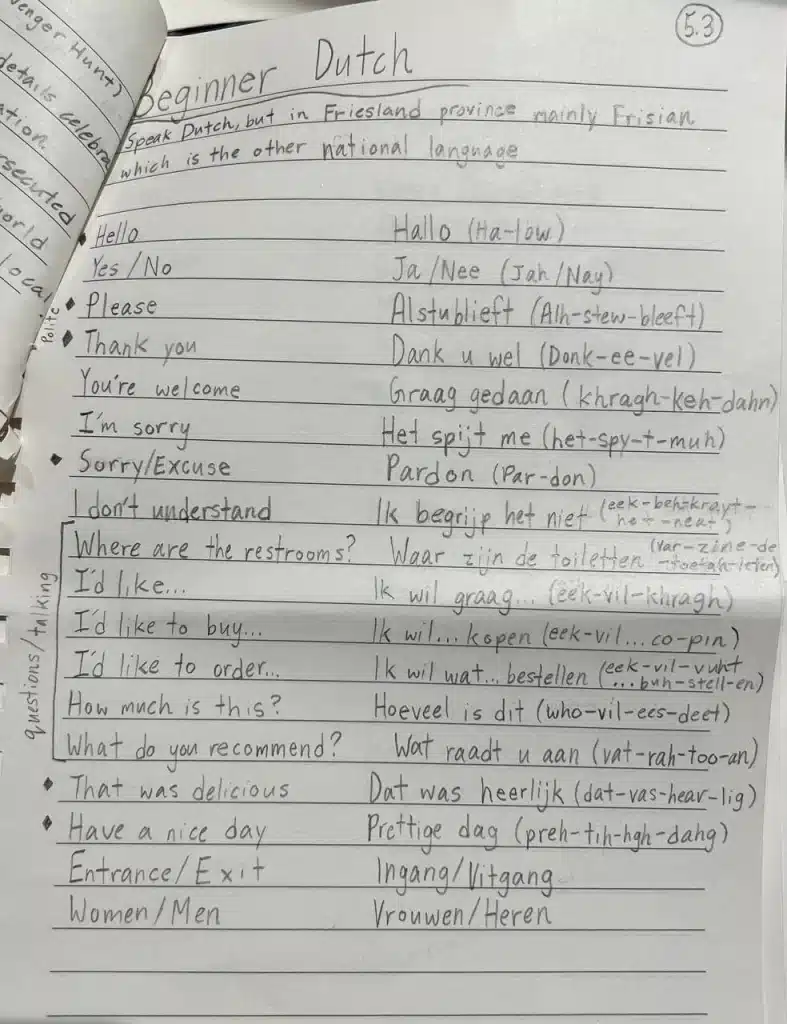 5.3
enger Hunt)
details celebra
ation
rsecuted
world
local
Beginner Dutch
Speak Dutch, but in Friesland province mainly Frisian
which is the other national language
Hello Hallo (Ha-low)
Yes/No Ja/Nee (Jah/Nay)
Polite
Please Alstublieft (Alh-stew-bleeft)
Thank you Dank u wel (Donk-ee-vel)
You're welcome Graag gedaan (khragh-keh-dahn)
I'm sorry Het spijt me (het-spy-t-muh)
Sorry/Excuse Pardon (Par-don)
I don't understand Ik begrijp het niet (eek-beh-krayt-
het-neat)
questions/talking
Where are the restrooms? Waar zijn de toiletten (var-zine-de
-toetah-leten)
I'd like... Ik wil graag... (eek-vil-khragh)
I'd like to buy... Ik wil... kopen (eek-vil... co-pin)
I'd like to order... Ik wil wat... bestellen (eek-vil-vuht
...buh-stell-en)
How much is this? Hoeveel is dit (who-vil-ees-deet)
What do you recommend? Wat raadt u aan (vat-rah-too-an)
That was delicious Dat was heerlijk (dat-vas-hear-lig)
Have a nice day Prettige dag (preh-tih-hgh-dahg)
Entrance/Exit Ingang/Vitgang
Women/Men Vrouwen/Heren